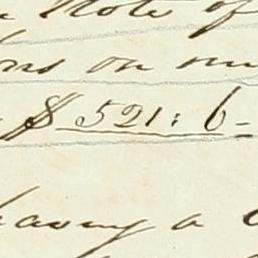 Note of
on
$ 521: 6-
having a